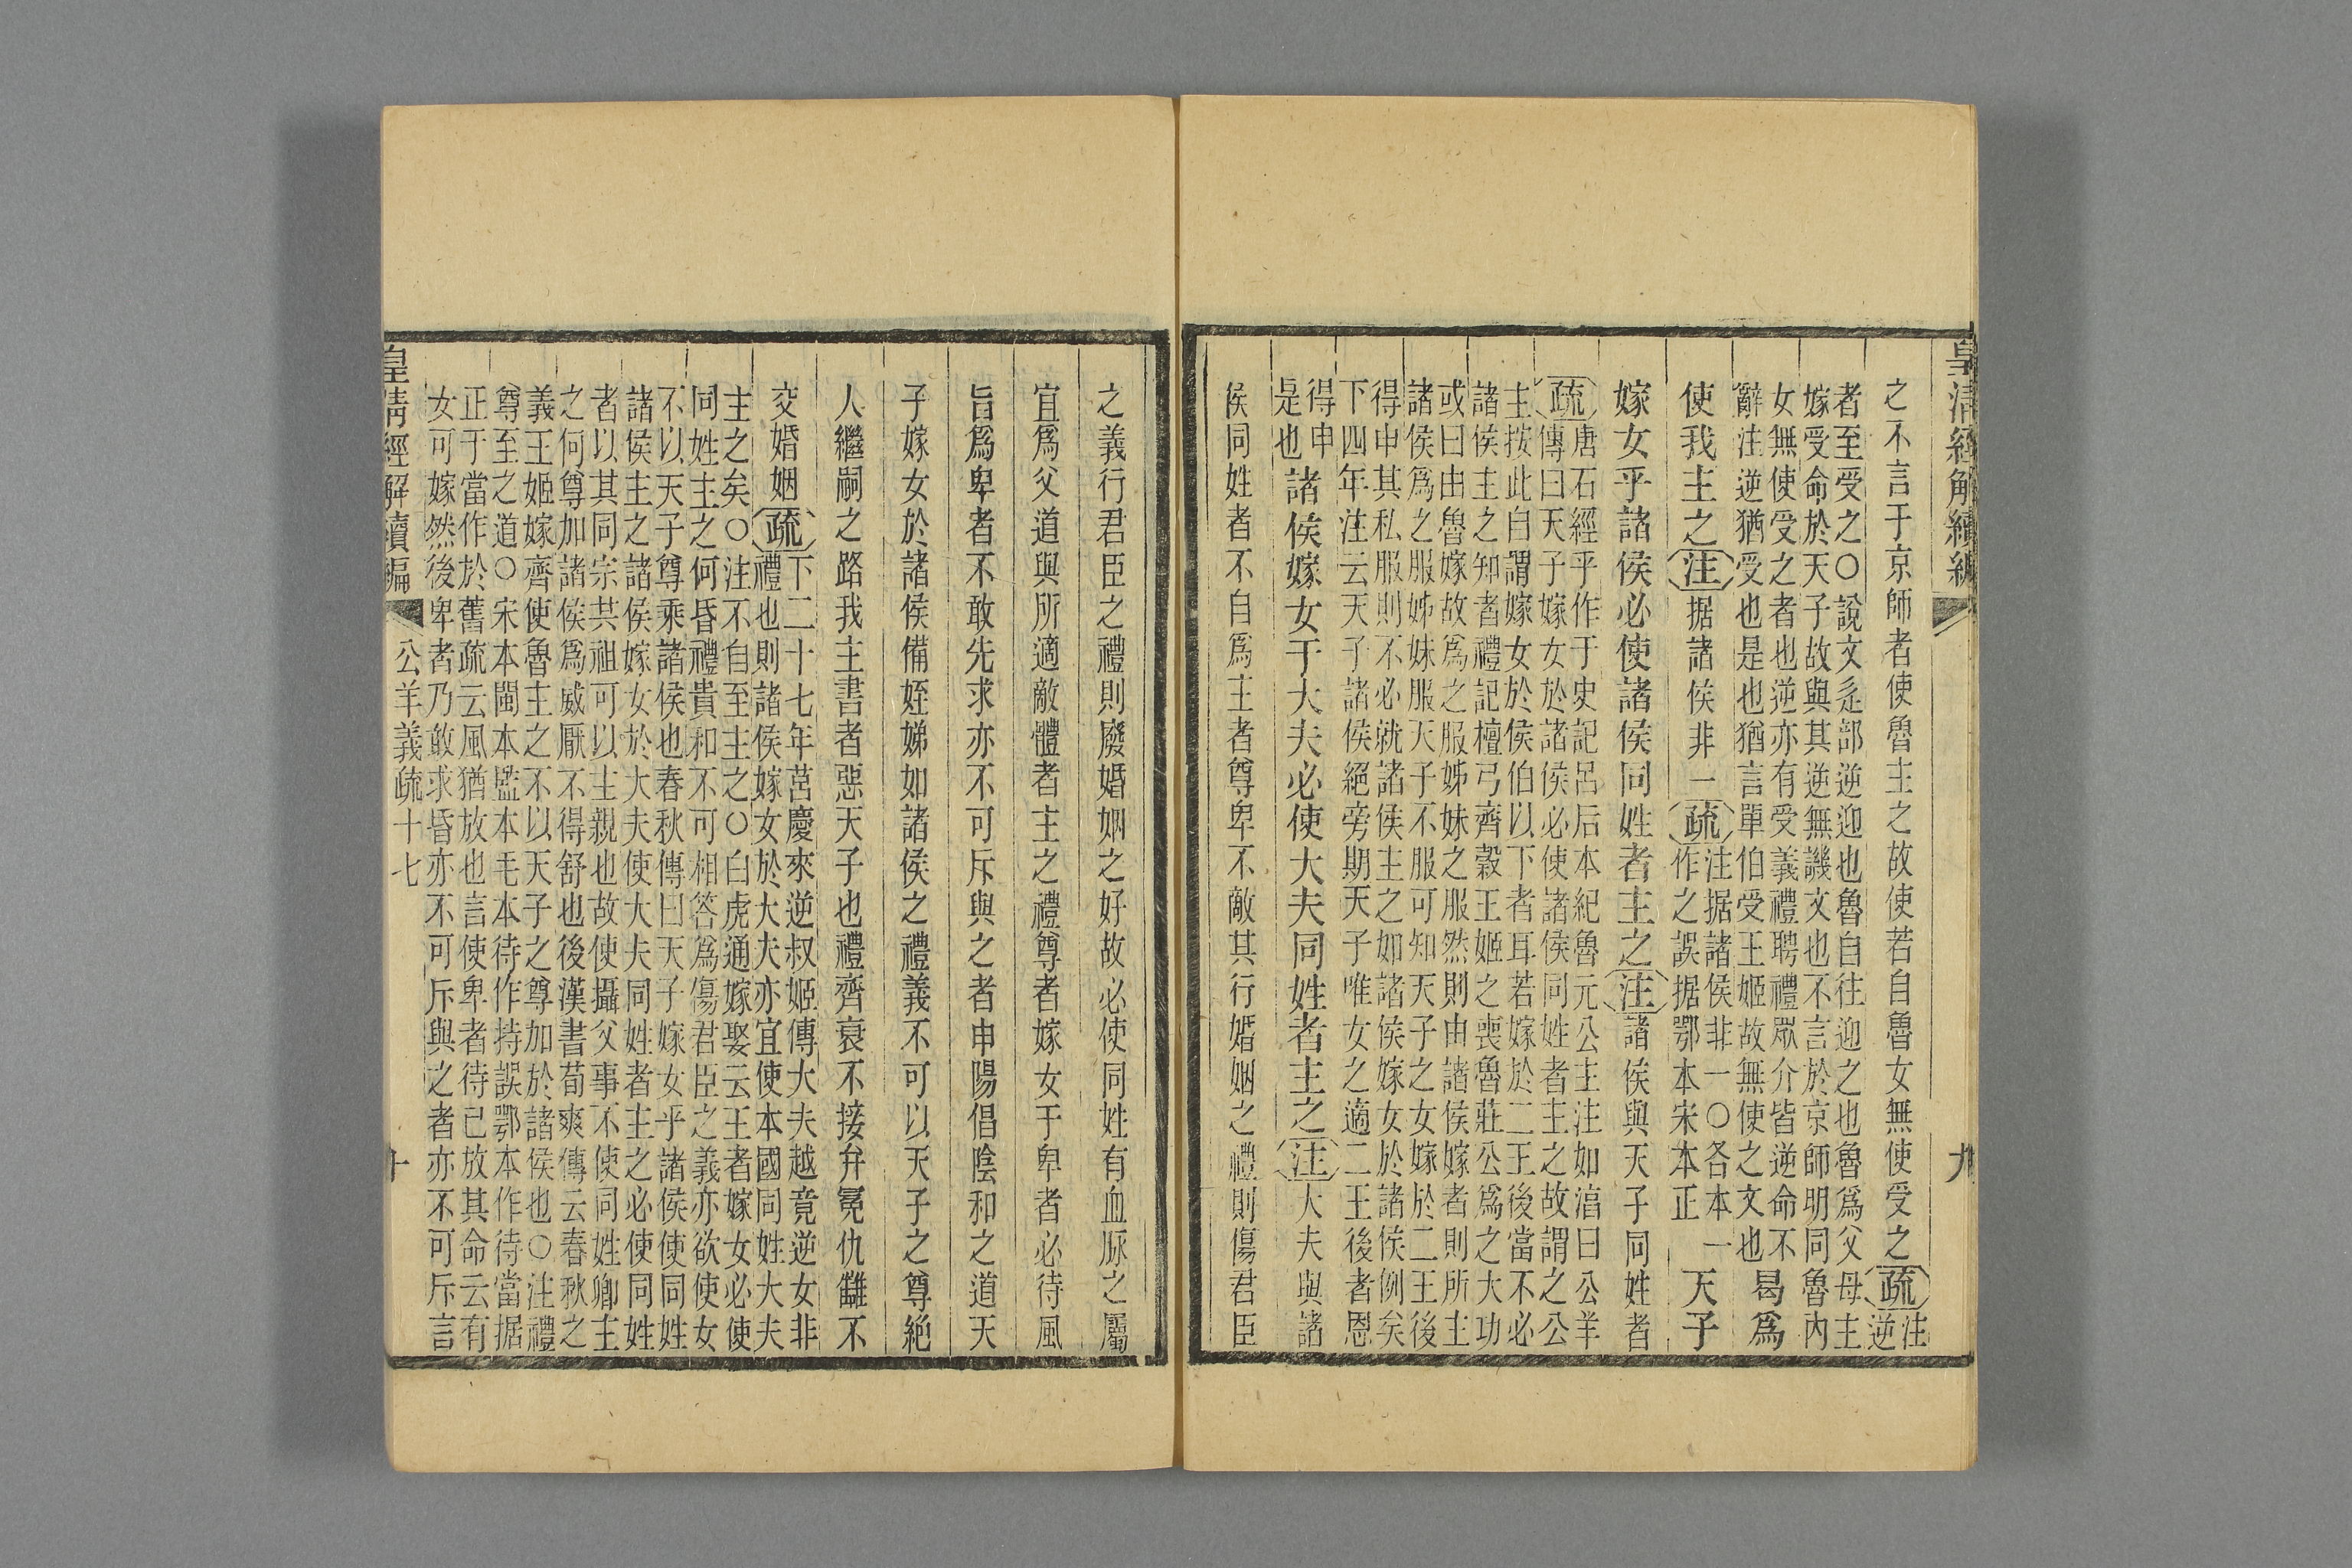 皇清經解續編
九
之不言于京師者使魯主之故使若自魯女無使受之疏注
逆
者至受之○說文辵部逆迎也魯自往迎之也魯爲父母主
嫁受命於天子故與其逆無譏文也不言於京師明同魯內
女無使受之者也逆亦有受義禮聘禮眾介皆逆命不
辭注逆猶受也是也猶言單伯受王姬故無使之文也
曷爲
使我主之注据諸侯非一疏注据諸侯非一○各本一
作之誤据鄂本宋本正
天子
嫁女乎諸侯必使諸侯同姓者主之注諸侯與天子同姓者
疏唐石經乎作于史記呂后本紀魯元公主注如湻曰公羊
傳曰天子嫁女於諸侯必使諸侯同姓者主之故謂之公
主按此自謂嫁女於侯伯以下者耳若嫁於二王後當不必
諸侯主之知者禮記檀弓齊穀王姬之喪魯莊公爲之大功
或曰由魯嫁故爲之服姊妹之服然則由諸侯嫁者則所主
諸侯爲之服姊妹服天子不服可知天子之女嫁於二王後
得申其私服則不必就諸侯主之如諸侯嫁女於諸侯例矣
下四年注云天子諸侯絕旁期天子唯女之適二王後者恩
得申
是也
諸侯嫁女于大夫必使大夫同姓者主之注大夫與諸
侯同姓者不自爲主者尊卑不敵其行婚姻之禮則傷君臣
之義行君臣之禮則廢婚姻之好故必使同姓有血脈之屬
宜爲父道與所適敵體者主之禮尊者嫁女于卑者必待風
旨爲卑者不敢先求亦不可斥與之者申陽倡陰和之道天
子嫁女於諸侯備姪娣如諸侯之禮義不可以天子之尊絕
人繼嗣之路我主書者惡天子也禮齊衰不接弁冕仇讎不
交婚姻疏下二十七年莒慶來逆叔姬傳大夫越竟逆女非
禮也則諸侯嫁女於大夫亦宜使本國同姓大夫
主之矣○注不自至主之○白虎通嫁娶云王者嫁女必使
同姓主之何昏禮貴和不可相答爲傷君臣之義亦欲使女
不以天子尊乘諸侯也春秋傳曰天子嫁女乎諸侯使同姓
諸侯主之諸侯嫁女於大夫使大夫同姓者主之必使同姓
者以其同宗共祖可以主親也故使攝父事不使同姓卿主
之何尊加諸侯爲威厭不得舒也後漢書荀爽傳云春秋之
義王姬嫁齊使魯主之不以天子之尊加於諸侯也○注禮
尊至之道○宋本閩本監本毛本待作持誤鄂本作待當据
正于當作於舊疏云風猶放也言使卑者待已放其命云有
女可嫁然後卑者乃敢求昏亦不可斥與之者亦不可斥言
皇清經解續編
公羊義疏十七
十